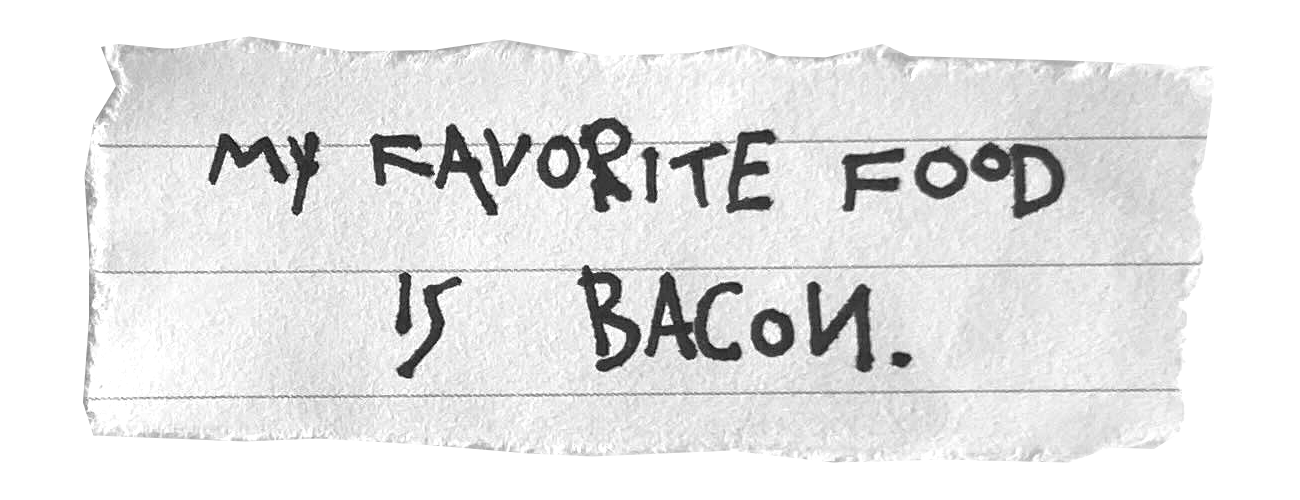 MY FAVORITE FOOD
IS BACON.